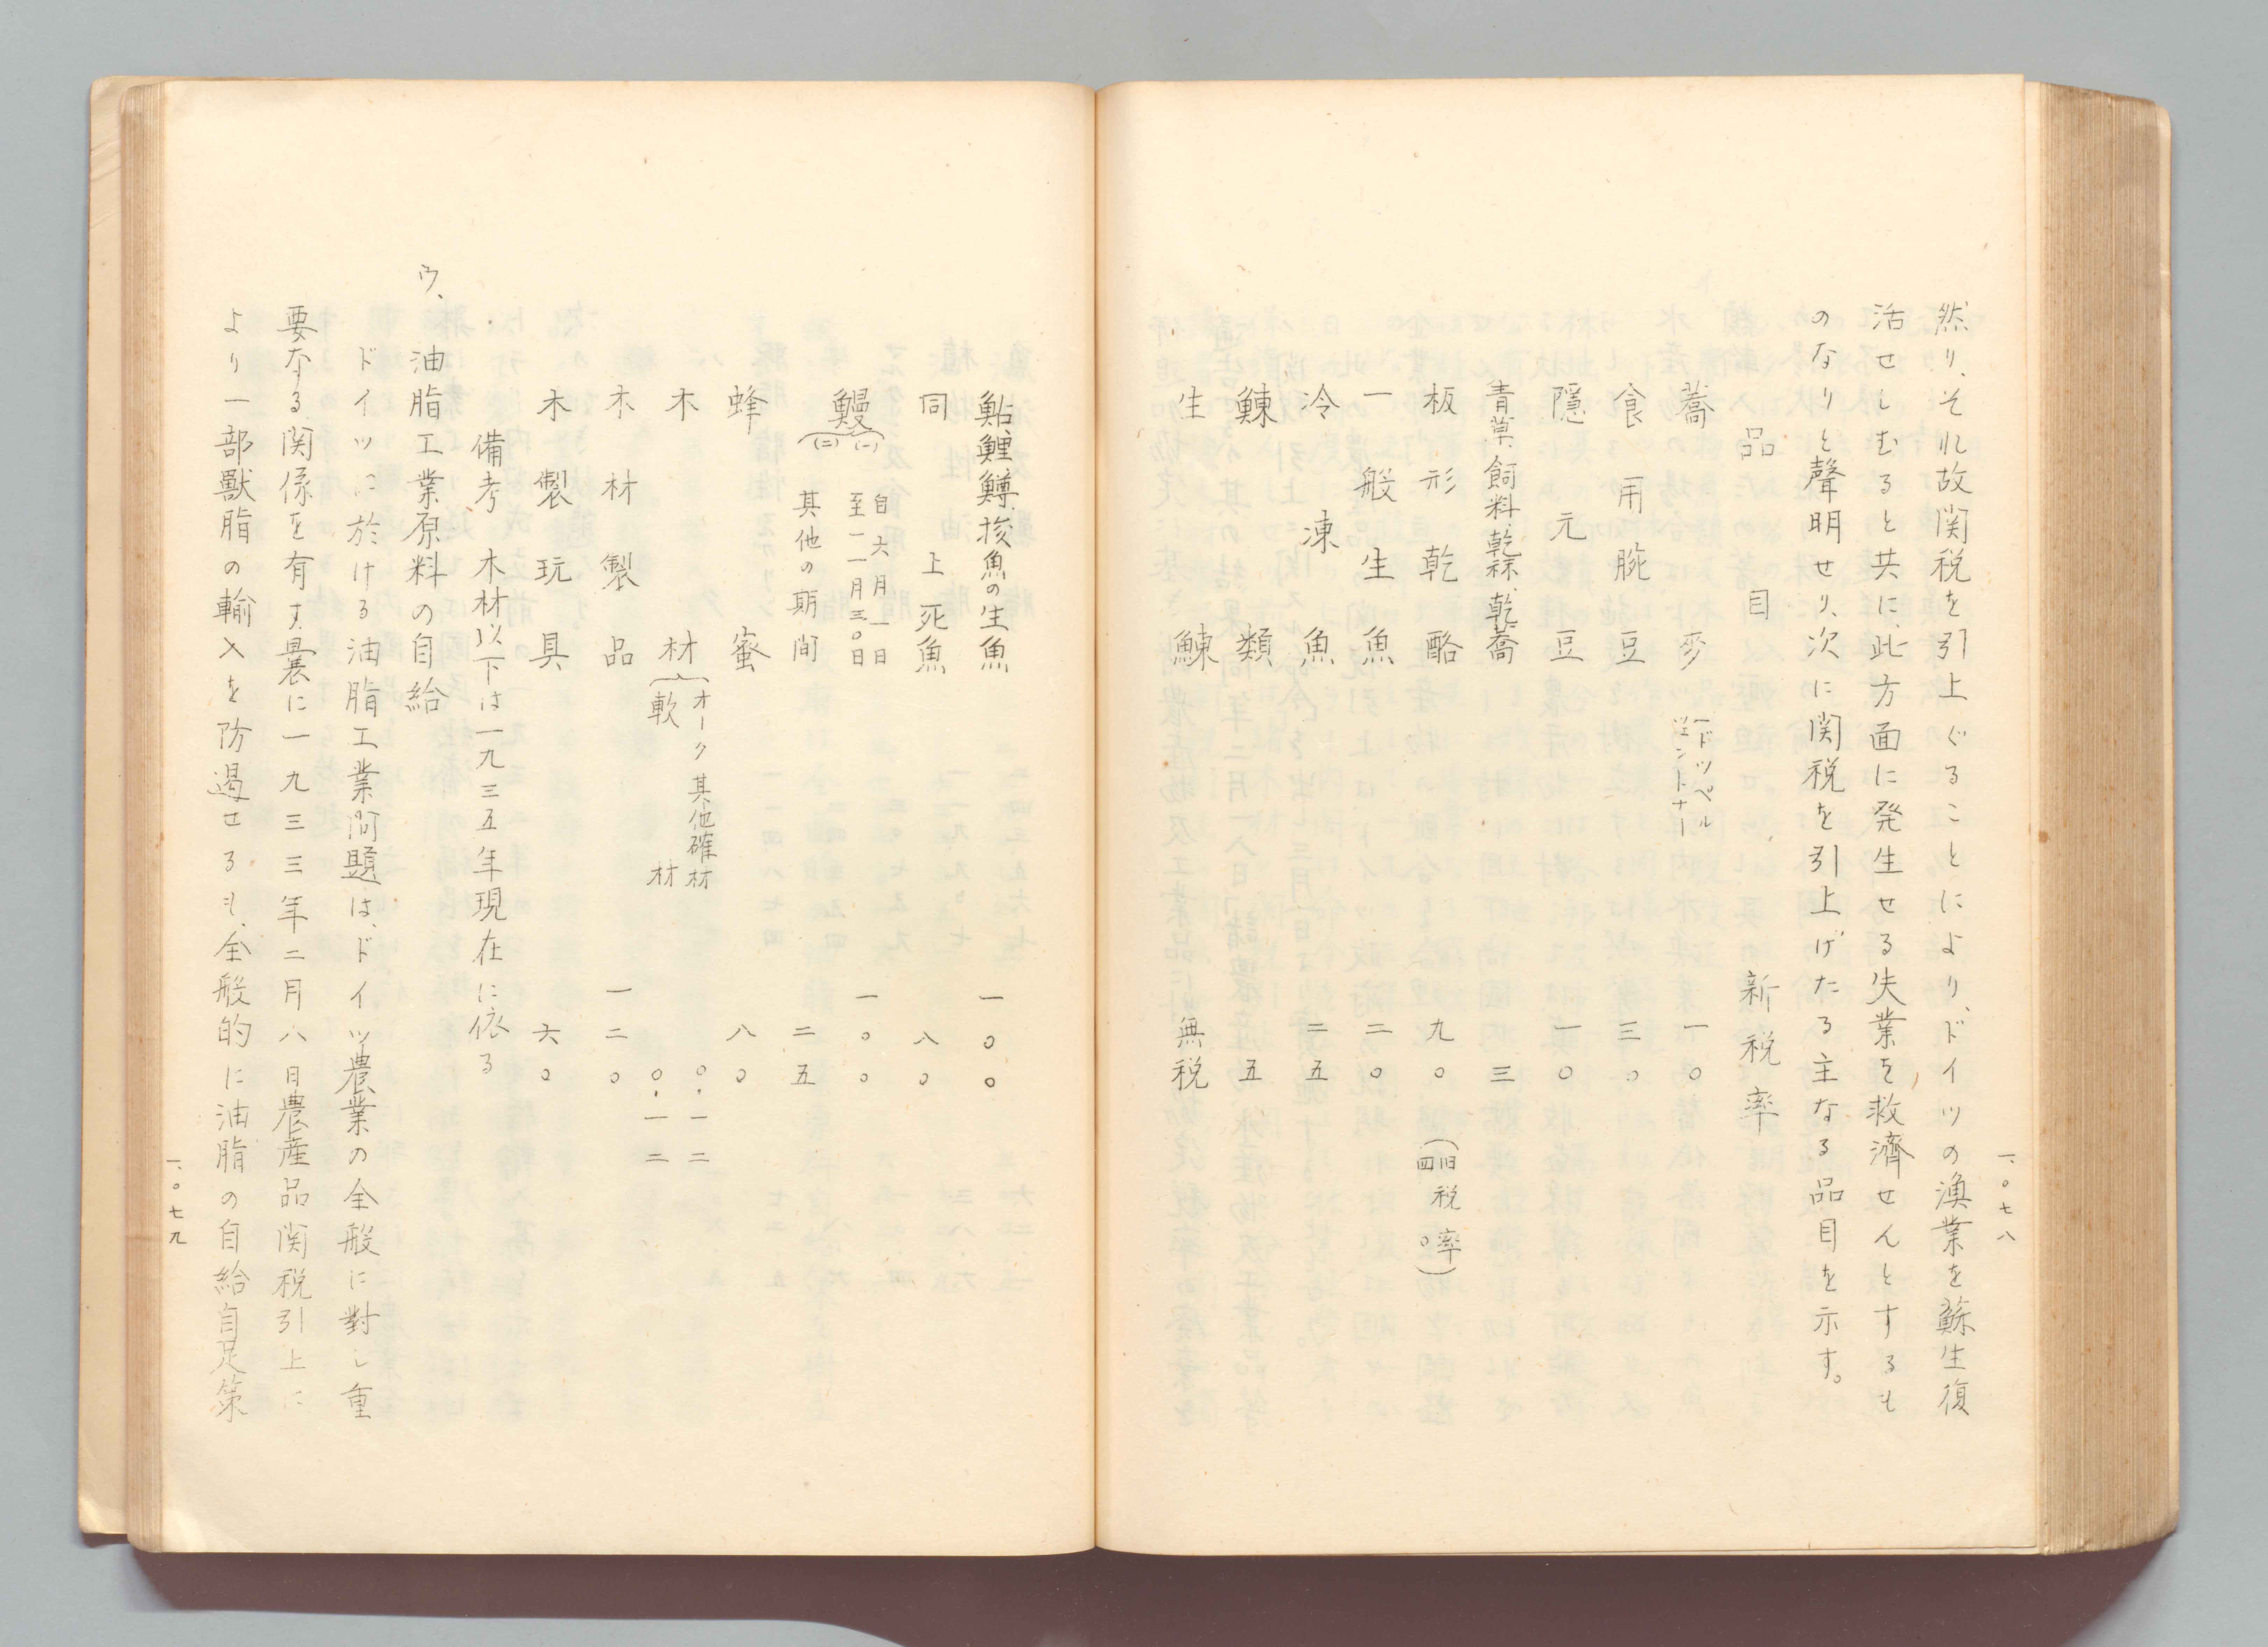 一、〇七八
然り、それ故関税を引上ぐることにより、ドイツの漁業を蘇生復
活せしむると共に、此方面に発生せる失業を救濟せんとするも
のなりと聲明せり、次に関税を引上げたる主なる品目を示す。
品目 新税率
蕎麥 (一ドッペルツェントナー 一〇
食用腕豆 三〇
隠元豆 一〇
青草、飼料、乾禄、乾蕎 三
板形乾酪 九〇 (旧税率四〇)
一般生魚 二〇
冷凍魚 二五
鰊類 五
生鰊 無税
鮎、鯉、鱒、梭魚の生魚 一〇〇
同上死魚 八〇
鰻 (一) 自六月一日至一一月三〇日 一〇〇
(二) 其他の期間 二五
蜂蜜 八〇
木材 オーク其他確材 〇・一二
軟材 〇・一二
木材製品 一二〇
木製玩具 六〇
備考 木材以下は一九三五年現在に依る
ウ、油脂工業原料の自給
ドイツに於ける油脂工業問題は、ドイツ農業の全般に對し重
要なる関係を有す、曩に一九三三年二月八日農産品関税引上に
より一部獸脂の輸入を防遏せるも、全般的に油脂の自給自足策
一、〇七九